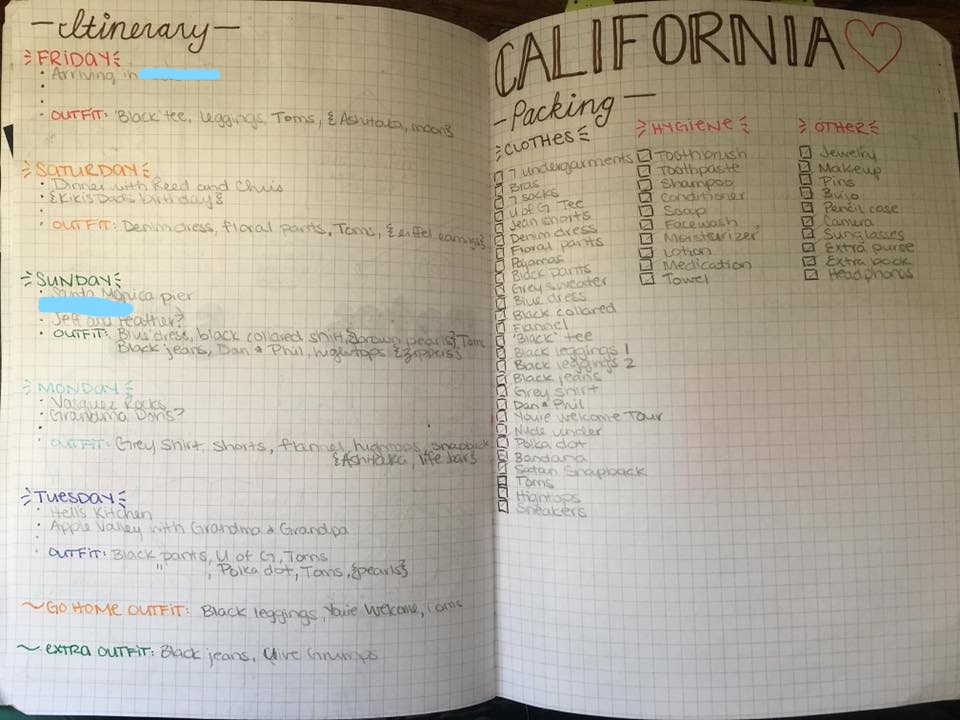 Itinerary
FRIDAY
Arriving in
OUTFIT: "Black" tee, leggings, Toms, {Ashitaka, moon}
SATURDAY
Dinner with Reed and Chris
{Kiki's Dad's birthday}
OUTFIT: Denim dress, floral pants, Toms, {eiffel earrings}
SUNDAY
Santa Monica pier
Jeff and Heather?
OUTFIT: Blue dress, black collared shirt, {brown pearls} Toms
Black jeans, Dan & Phil, hightops {zippers}
MONDAY
Vasquez Rocks
Grandma Doris?
OUTFIT: Grey shirt, shorts, flannel, hightops, snapback
{Ashitaka, life bar}
TUESDAY
Hell's Kitchen
Apple Valley with Grandma & Grandpa
OUTFIT: Black pants, U of G, Toms
" , Polka dot, Toms, {pearls}
~GO HOME OUTFIT: Black leggings, You're Welcome, Toms
~ EXTRA OUTFIT: Black jeans, Grumps
CALIFORNIA
-Packing-
CLOTHES
7 undergarments
Bras
7 socks
U of G Tee
Jean shorts
Denim dress
Floral pants
Pajamas
Black pants
Grey sweater
Blue dress
Black collared
Flannel
"Black" tee
Black leggings 1
Black leggings 2
Black jeans
Grey shirt
Dan & Phil
You're Welcome Tour
Nude under
Polka dot
Bandana
Satan Snapback
Toms
Hightops
Sneakers
HYGIENE
Toothbrush
Toothpaste
Shampoo
Conditioner
Soap
Facewash
Moisturizer
Lotion
Medication
Towel
OTHER
Jewelry
Makeup
Pins
Bujo
Pencil case
Camera
Sunglasses
Extra purse
Extra book
Headphones